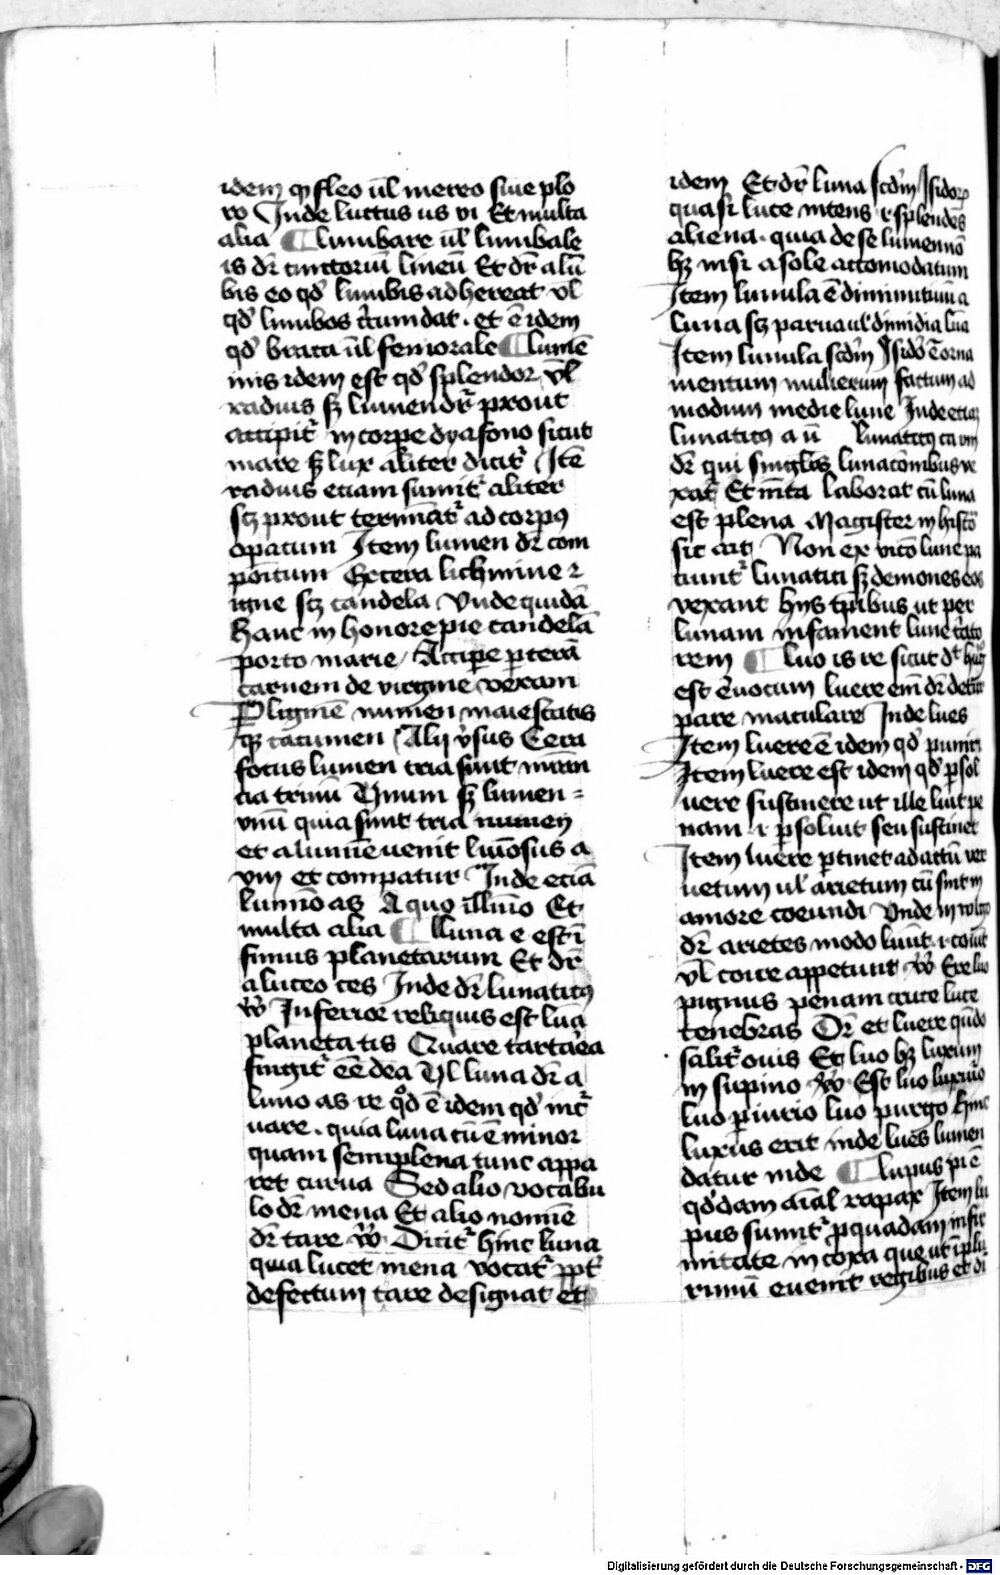 idem qͥ fleo ūl mereo siue plo
ro Inde luctus us ui Et multa
alia ¶ lumbare ūl lumbale
is dr̄ cinctoriū lineū Et dr̄ a lū
bis eo qd̛ lumbis adhereat vl̄
qd̛ lumbos c̄cumdat . et ē idem
qd̛ braca ūl femorale ¶ lumē
inis idem est qd̛ splendor vl̄
radius sꝫ lumen dr̄ prout
accipit᷑ in corpe dyafono sicut
mare sꝫ lux aliter dicit᷑ Itē
radius etiam sumit᷑ aliter
scꝫ prout termīat᷑ ad corpꝰ
opacum Item lumen dr̄ com
poītum Ex cera lichmine ⁊
igne scꝫ candela Vnde quidā
Hanc in honore pie candelā
porto marie Accipe ꝑ cerā
carnem de virgine veram
Per lignē numen maiestatis
qꝫ cacumen Alij v̛sus Cera
focus lumen tria sunt
cia trinū Vnum sꝫ lumen =
vnū quia sunt tria numen
et a lumīe uenit luīosus a
vm et compatur Inde eciā
lumīo as A quo illuīo Et
multa alia ¶ lluna e est ī
fimus planetarum Et dr̄
a luceo ces Inde dr̄ lunaticꝰ
v̛ꝰ Inferior reliquis est lūa
planeta tis Quare tartarea
fingit᷑ eē dea Vl luna dr̄ a
luno as re qd̛ ē idem qd̛ inc᷑
uare . quia luna cū ē minor
quam semiplena tunc appa
ret curua Sed alio vocabu
lo dr̄ mena Et alio nomīe
dr̄ tare v̛ꝰ Dicit᷑ hinc luna
quia lucet mena vocat᷑ ꝓpt̛
defectum tare designat et
idem Et dr̄ luna scd̛m Isidoꝝ
quasi luce nitens ⁊ splendēs
aliena . quia de se lumen nō
hꝫ nisi a sole accomodatum
Item lunula ē diminitiuū a
luna scꝫ parua ul̛ dimidia lūa
Item lunula scd̛m Isid̛o ē orna
mentum mulierum factum ad
modum medie lune Inde etiaꝫ
lunaticꝰ a ū lunaticꝰ ca vm
dr̄ qui singl̄is lunacōnibus ve
xat᷑ Et m̄ta laborat cū luna
est plena Magister in histō
sic ait Non ex vicō lune pa
ciunt᷑ lunatici sꝫ demones eos
vexant hijs tp̄ibus ut per
lunam infament lune c̛ato
rem ¶ luo is re sicut dc̄ hug̛
est eq̄uocum luere em̄ dr̄ detur
pare maculare Inde lues
Item luere ē idem qd̛ puniri
Item luere est idem qd̛ ꝑsol
uere sustinere ut ille luit pe
nam .i. ꝑsoluit seu sustinet
Item luere ꝑtinet ad actū ver
uecum ul̛ arietum cū sint in
amore coeundi Vnde in vulgo
dr̄ arietes modo luūt .i. coeūt
Vl coire appetunt v̛ꝰ Ere luo
pignus penam cruce luce
tenebras Dr̄ et luere qn̄do
salit᷑ ouis Et luo hꝫ luxum
in supino v̛ꝰ Est luo
luo ꝑ iurio luo purgo hinc
luxus erit inde lues lumen
datur inde ¶ lupus pi ē
qd̛dam aīal rapax Item lu
pus sumit᷑ ꝓ quadam infir
mitate in coxa que ut īplu
rimū euenit regibus et di
Digitalisierung gefördert durch die Deutsche Forschungsgemeinschaft - DFG